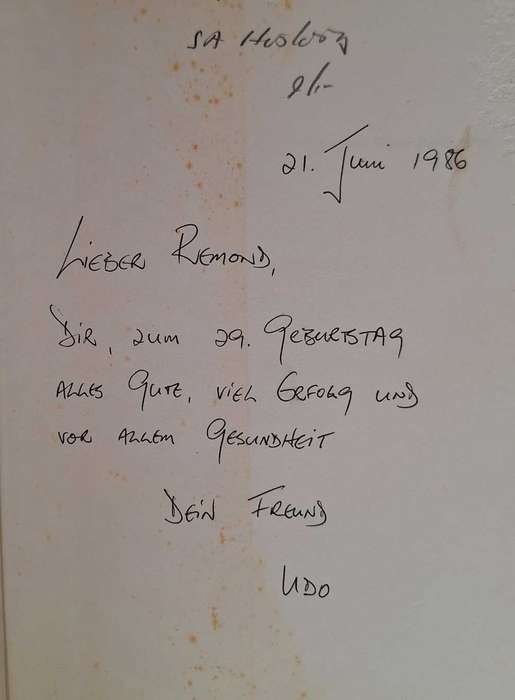 SA
21. Juni 1986
LIEBER REMOND,
DIR, ZUM 29. GEBURTSTAG
ALLES GUTE, VIEL ERFOLG UND
VOR ALLEM GESUNDHEIT
DEIN FREUND
UDO